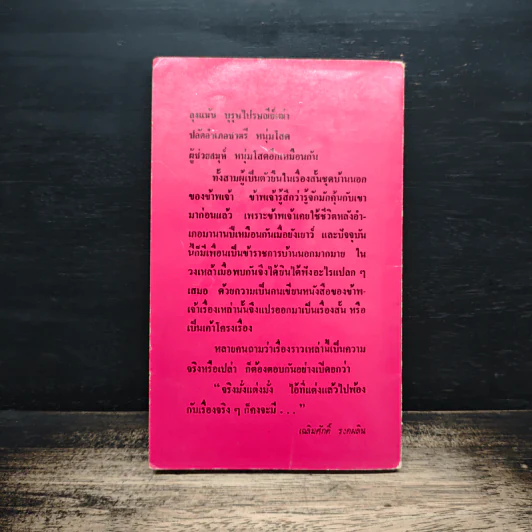 ลุงแน้ย บุรุษไปรษณีย์เฒ่า
ปลัดอำเภอชวตรี หนุ่มโสด
ผู้ช่วยสมุห์ หนุ่มโสดอีกเหมือนกัน
ทั้งสามผู้เป็นตัวยืนในเรื่องสั้นชุดบ้านนอก
ของข้าพเจ้า ข้าพเจ้ารู้สึกว่ารู้จักมักคุ้นกับเขา
มาก่อนแล้ว เพราะข้าพเจ้าเคยใช้ชีวิตหลังอำ-
เภอมานานปีเหมือนกันเมื่อยังเยาว์ และปัจจุบัน
นี้ก็มีเพื่อนเป็นข้าราชการบ้านนอกมากมาย ใน
วงเหล้าเมื่อพบกันจึงได้ยินได้ฟังอะไรแปลก ๆ
เสมอ ด้วยความเป็นคนเขียนหนังสือของข้าพ-
เจ้าเรื่องเหล่านั้นจึงแปรออกมาเป็นเรื่องสั้น หรือ
เป็นเค้าโครงเรื่อง
หลายคนถามว่าเรื่องราวเหล่านี้เป็นความ
จริงหรือเปล่า ก็ต้องตอบกันอย่างเปิดอกว่า
“จริงมั่งแต่งมั่ง ไอ้ที่แต่งแล้วไปพ้อง
กับเรื่องจริง ๆ ก็คงจะมี . . .”
เฉลิมศักดิ์ รงคผลิน